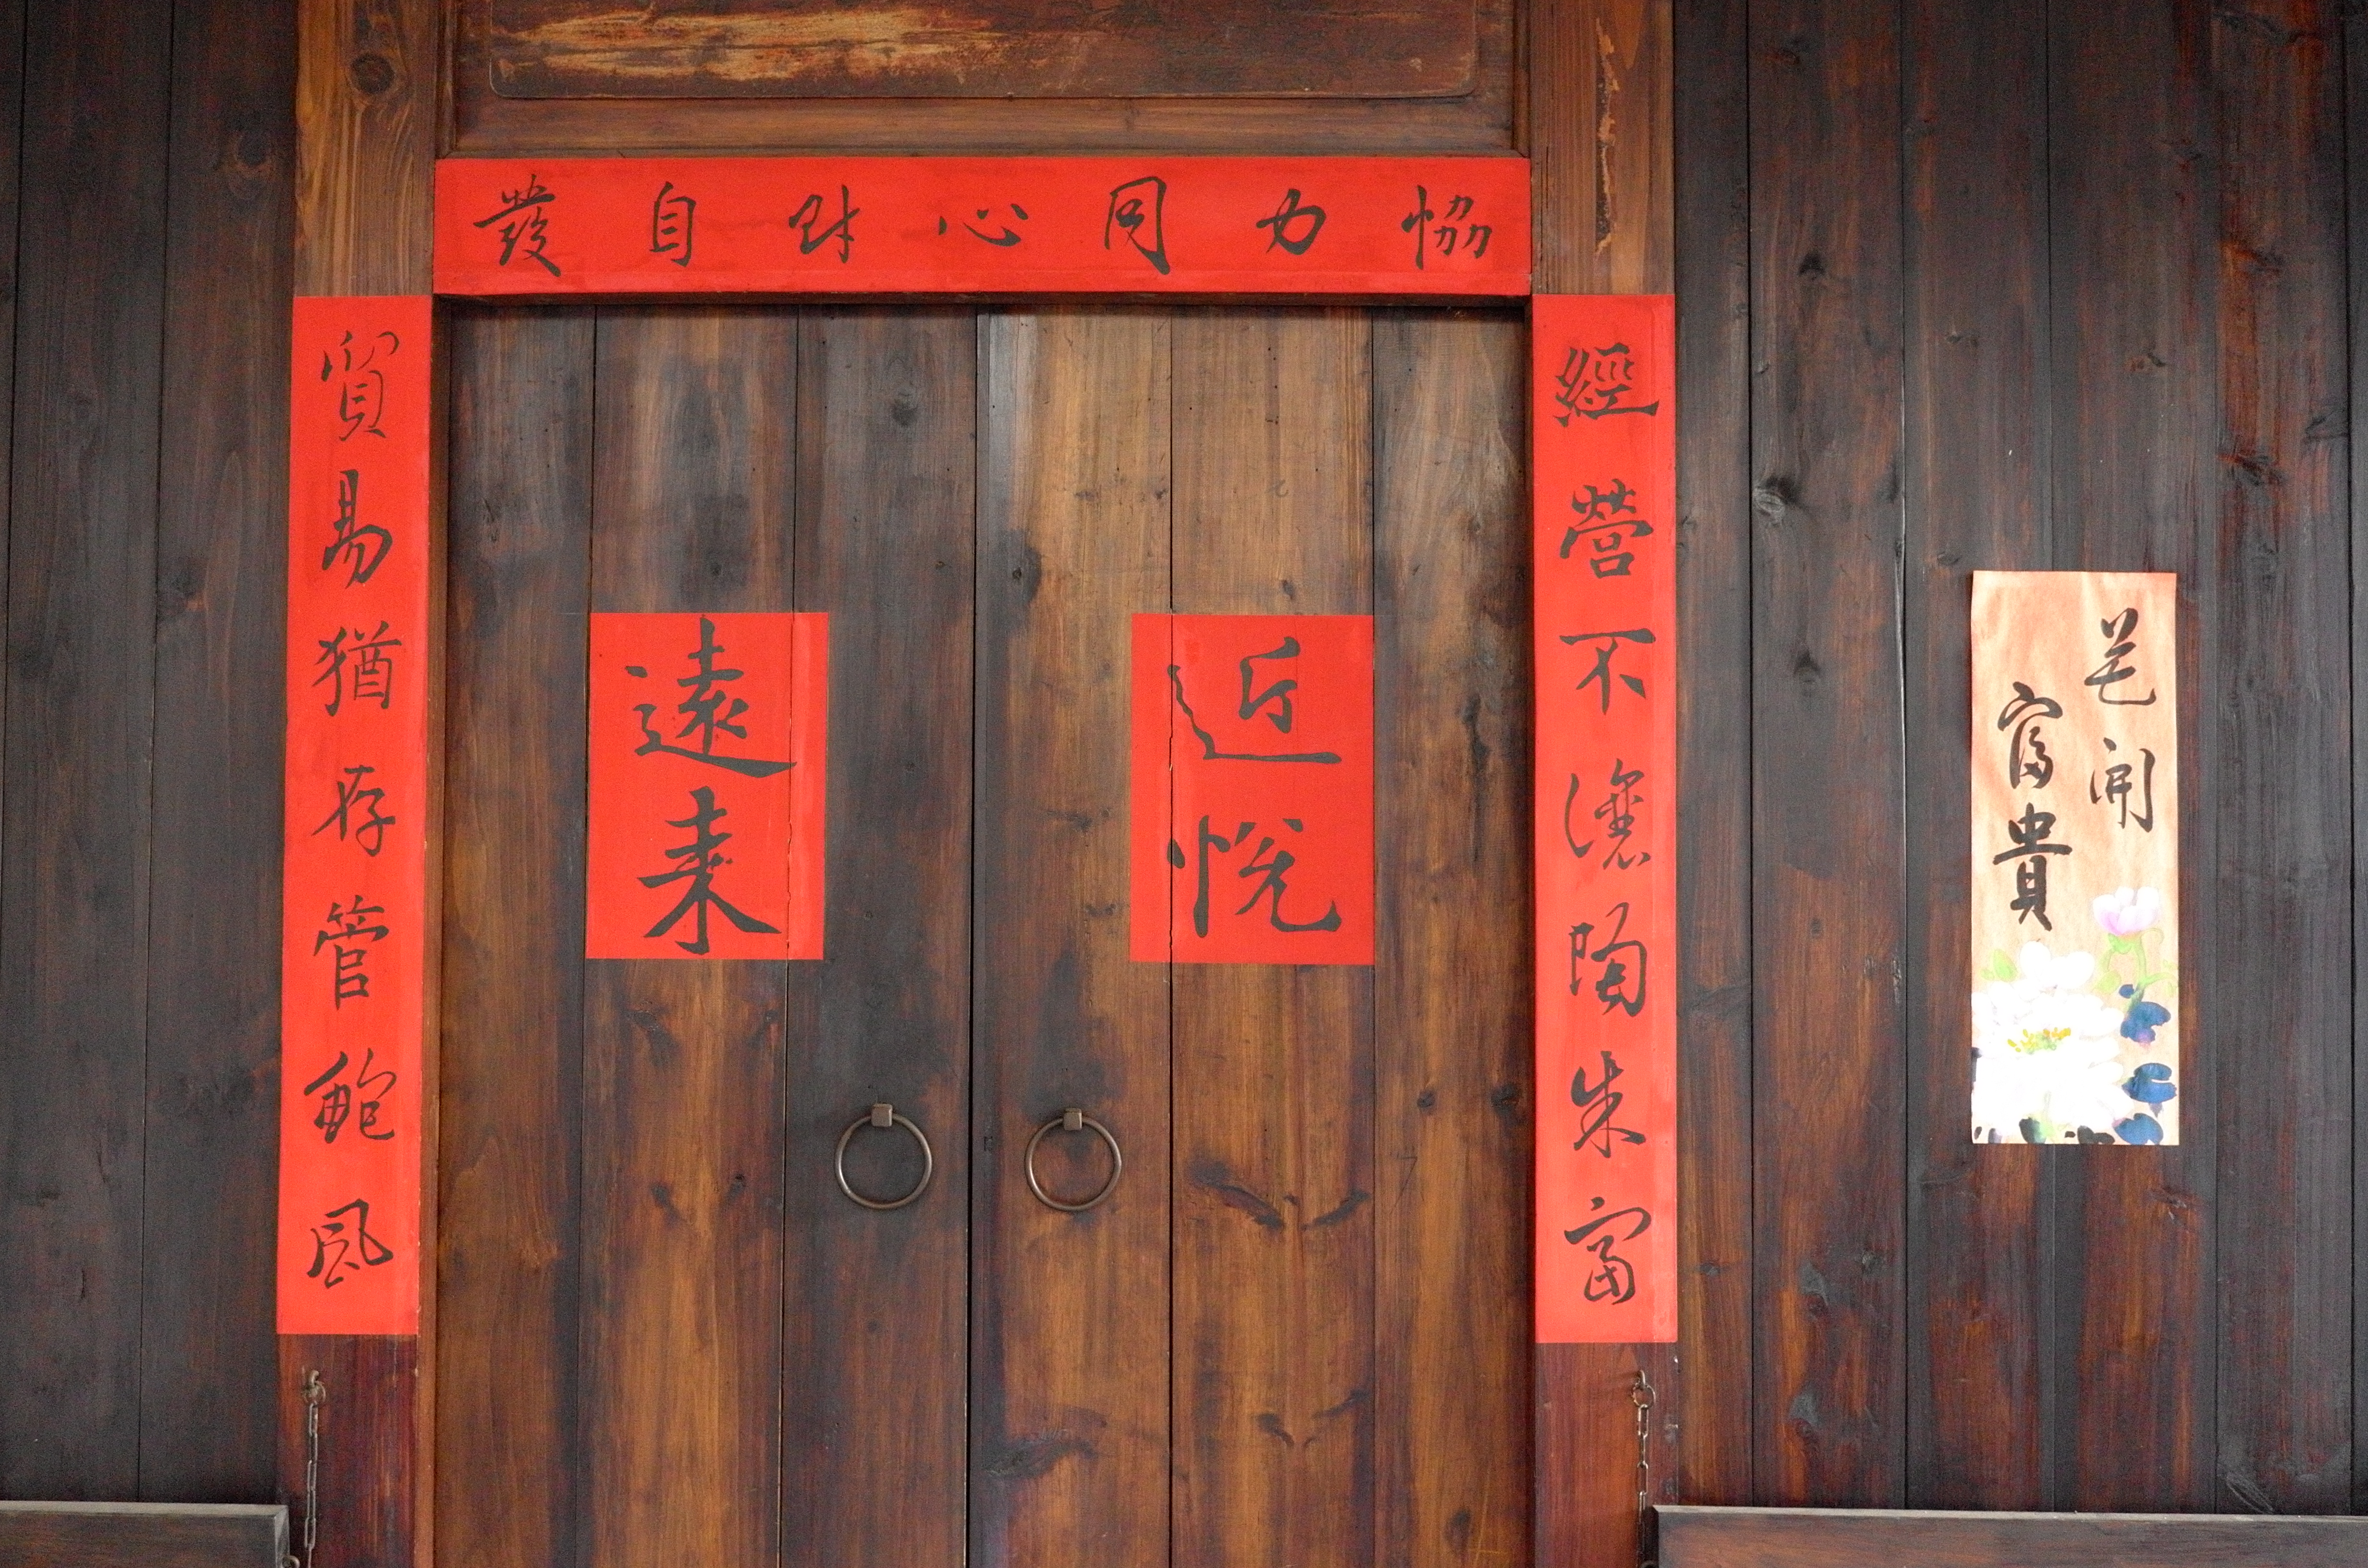 恊力同心財自發
經營不讓陶朱富
貿易猶存管鮑風
近悅
遠來
花開
富貴